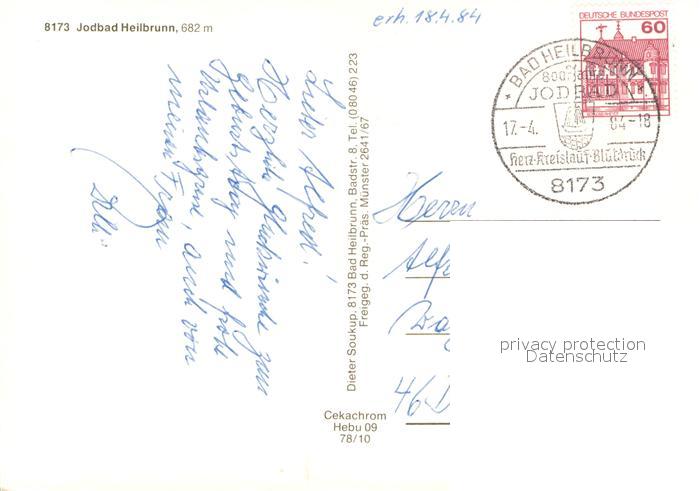 8173 Jodbad Heilbrunn, 682 m
erh. 18.4.84
DEUTSCHE BUNDESPOST
60
BAD HEILBRUNN
800 Jahre
JODBAD
17.-4. 84-18
Herz-Kreislauf-Blutdruck
8173
Lieber Alfred!
Herzliche Glückwünsche zum
Geburtstag und frohe
Urlaubsgrüsse, auch von
meiner Frau
Dieter Soukup, 8173 Bad Heilbrunn, Badstr. 8, Tel. (08046) 223
Freigeg. d. Reg.-Präs. Münster 2641/67
Herrn
Alf
46 D
privacy protection
Datenschutz
Cekachrom
Hebu 09
78/10